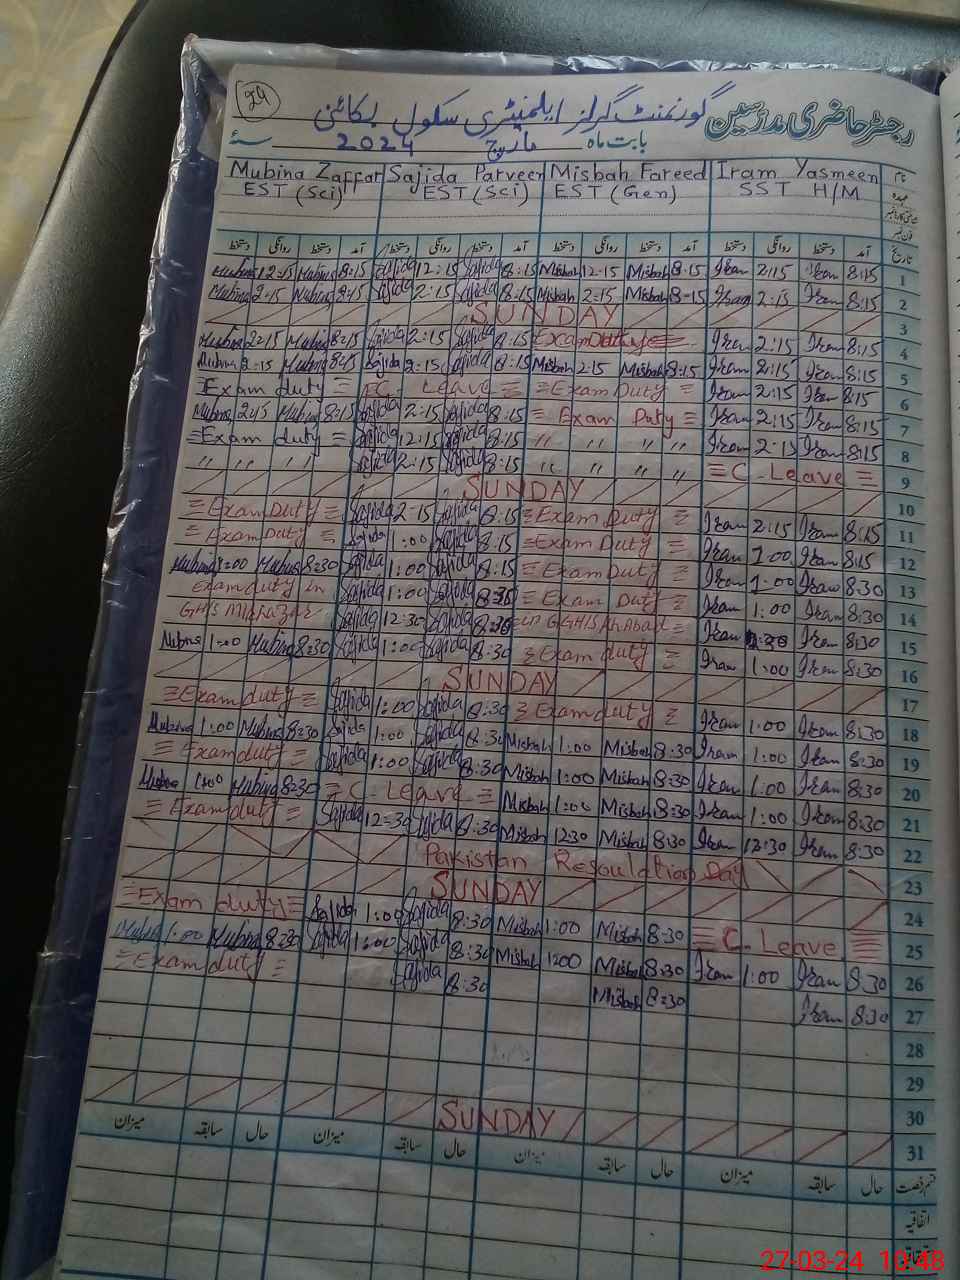 29
رجسٹر حاضری مدرسین گورنمنٹ گرلز ایلیمنٹری سکول
بابت ماہ مارچ 2024 سنۂ
Mubina Zaffar Sajida Parveen Misbah Fareed Iram Yasmeen نام
EST (Sci) EST (Sci) EST (Gen) SST H/M عہدہ
فون نمبر
دستخط روانگی دستخط آمد دستخط روانگی دستخط آمد دستخط روانگی دستخط آمد دستخط روانگی دستخط آمد تاریخ
Mubina 12:15 Mubina 8:15 Sajida 12:15 Sajida 8:15 Misbah 12:15 Misbah 8:15 Iram 2:15 Iram 8:15 1
Mubina 2:15 Mubina 8:15 Sajida 2:15 Sajida 8:15 Misbah 2:15 Misbah 8:15 Iram 2:15 Iram 8:15 2
SUNDAY 3
Mubina 2:15 Mubina 8:15 Sajida 2:15 Sajida 8:15 Exam Duty Iram 2:15 Iram 8:15 4
Mubina 2:15 Mubina 8:15 Sajida 2:15 Sajida 8:15 Misbah 2:15 Misbah 8:15 Iram 2:15 Iram 8:15 5
Exam duty C. Leave Exam Duty Iram 2:15 Iram 8:15 6
Mubina 2:15 Mubina 8:15 Sajida 2:15 Sajida 8:15 Exam Duty Iram 2:15 Iram 8:15 7
Exam duty Sajida 12:15 Sajida 8:15 " " " " Iram 2:15 Iram 8:15 8
" " " " Sajida 2:15 Sajida 8:15 " " " " C. Leave 9
SUNDAY 10
Exam Duty Sajida 2:15 Sajida 8:15 Exam Duty Iram 2:15 Iram 8:15 11
Exam Duty Sajida 1:00 Sajida 8:15 Exam Duty Iram 1:00 Iram 8:15 12
Mubina 1:00 Mubina 8:30 Sajida 1:00 Sajida 8:15 Exam Duty Iram 1:00 Iram 8:30 13
Exam duty in Sajida 1:00 Sajida 8:30 Exam Duty Iram 1:00 Iram 8:30 14
GHS Sajida 12:30 Sajida 8:30 in GGHS Iram 12:30 Iram 8:30 15
Mubina 1:00 Mubina 8:30 Sajida 1:00 Sajida 8:30 Exam duty Iram 1:00 Iram 8:30 16
SUNDAY 17
Exam duty Sajida 1:00 Sajida 8:30 Exam duty Iram 1:00 Iram 8:30 18
Mubina 1:00 Mubina 8:30 Sajida 1:00 Sajida 8:30 Misbah 1:00 Misbah 8:30 Iram 1:00 Iram 8:30 19
Exam duty Sajida 1:00 Sajida 8:30 Misbah 1:00 Misbah 8:30 Iram 1:00 Iram 8:30 20
Mubina 1:00 Mubina 8:30 C. Leave Misbah 1:00 Misbah 8:30 Iram 1:00 Iram 8:30 21
Exam duty Sajida 12:30 Sajida 8:30 Misbah 12:30 Misbah 8:30 Iram 12:30 Iram 8:30 22
Pakistan Resoulation Day 23
SUNDAY 24
Exam duty Sajida 1:00 Sajida 8:30 Misbah 1:00 Misbah 8:30 C. Leave 25
Mubina 1:00 Mubina 8:30 Sajida 1:00 Sajida 8:30 Misbah 1:00 Misbah 8:30 Iram 1:00 Iram 8:30 26
Exam duty Sajida 8:30 Misbah 8:30 Iram 8:30 27
28
29
30
SUNDAY 31
میزان سابقہ حال میزان سابقہ حال میزان سابقہ حال میزان سابقہ حال قسم رخصت
اتفاقیہ
27-03-24 10:48